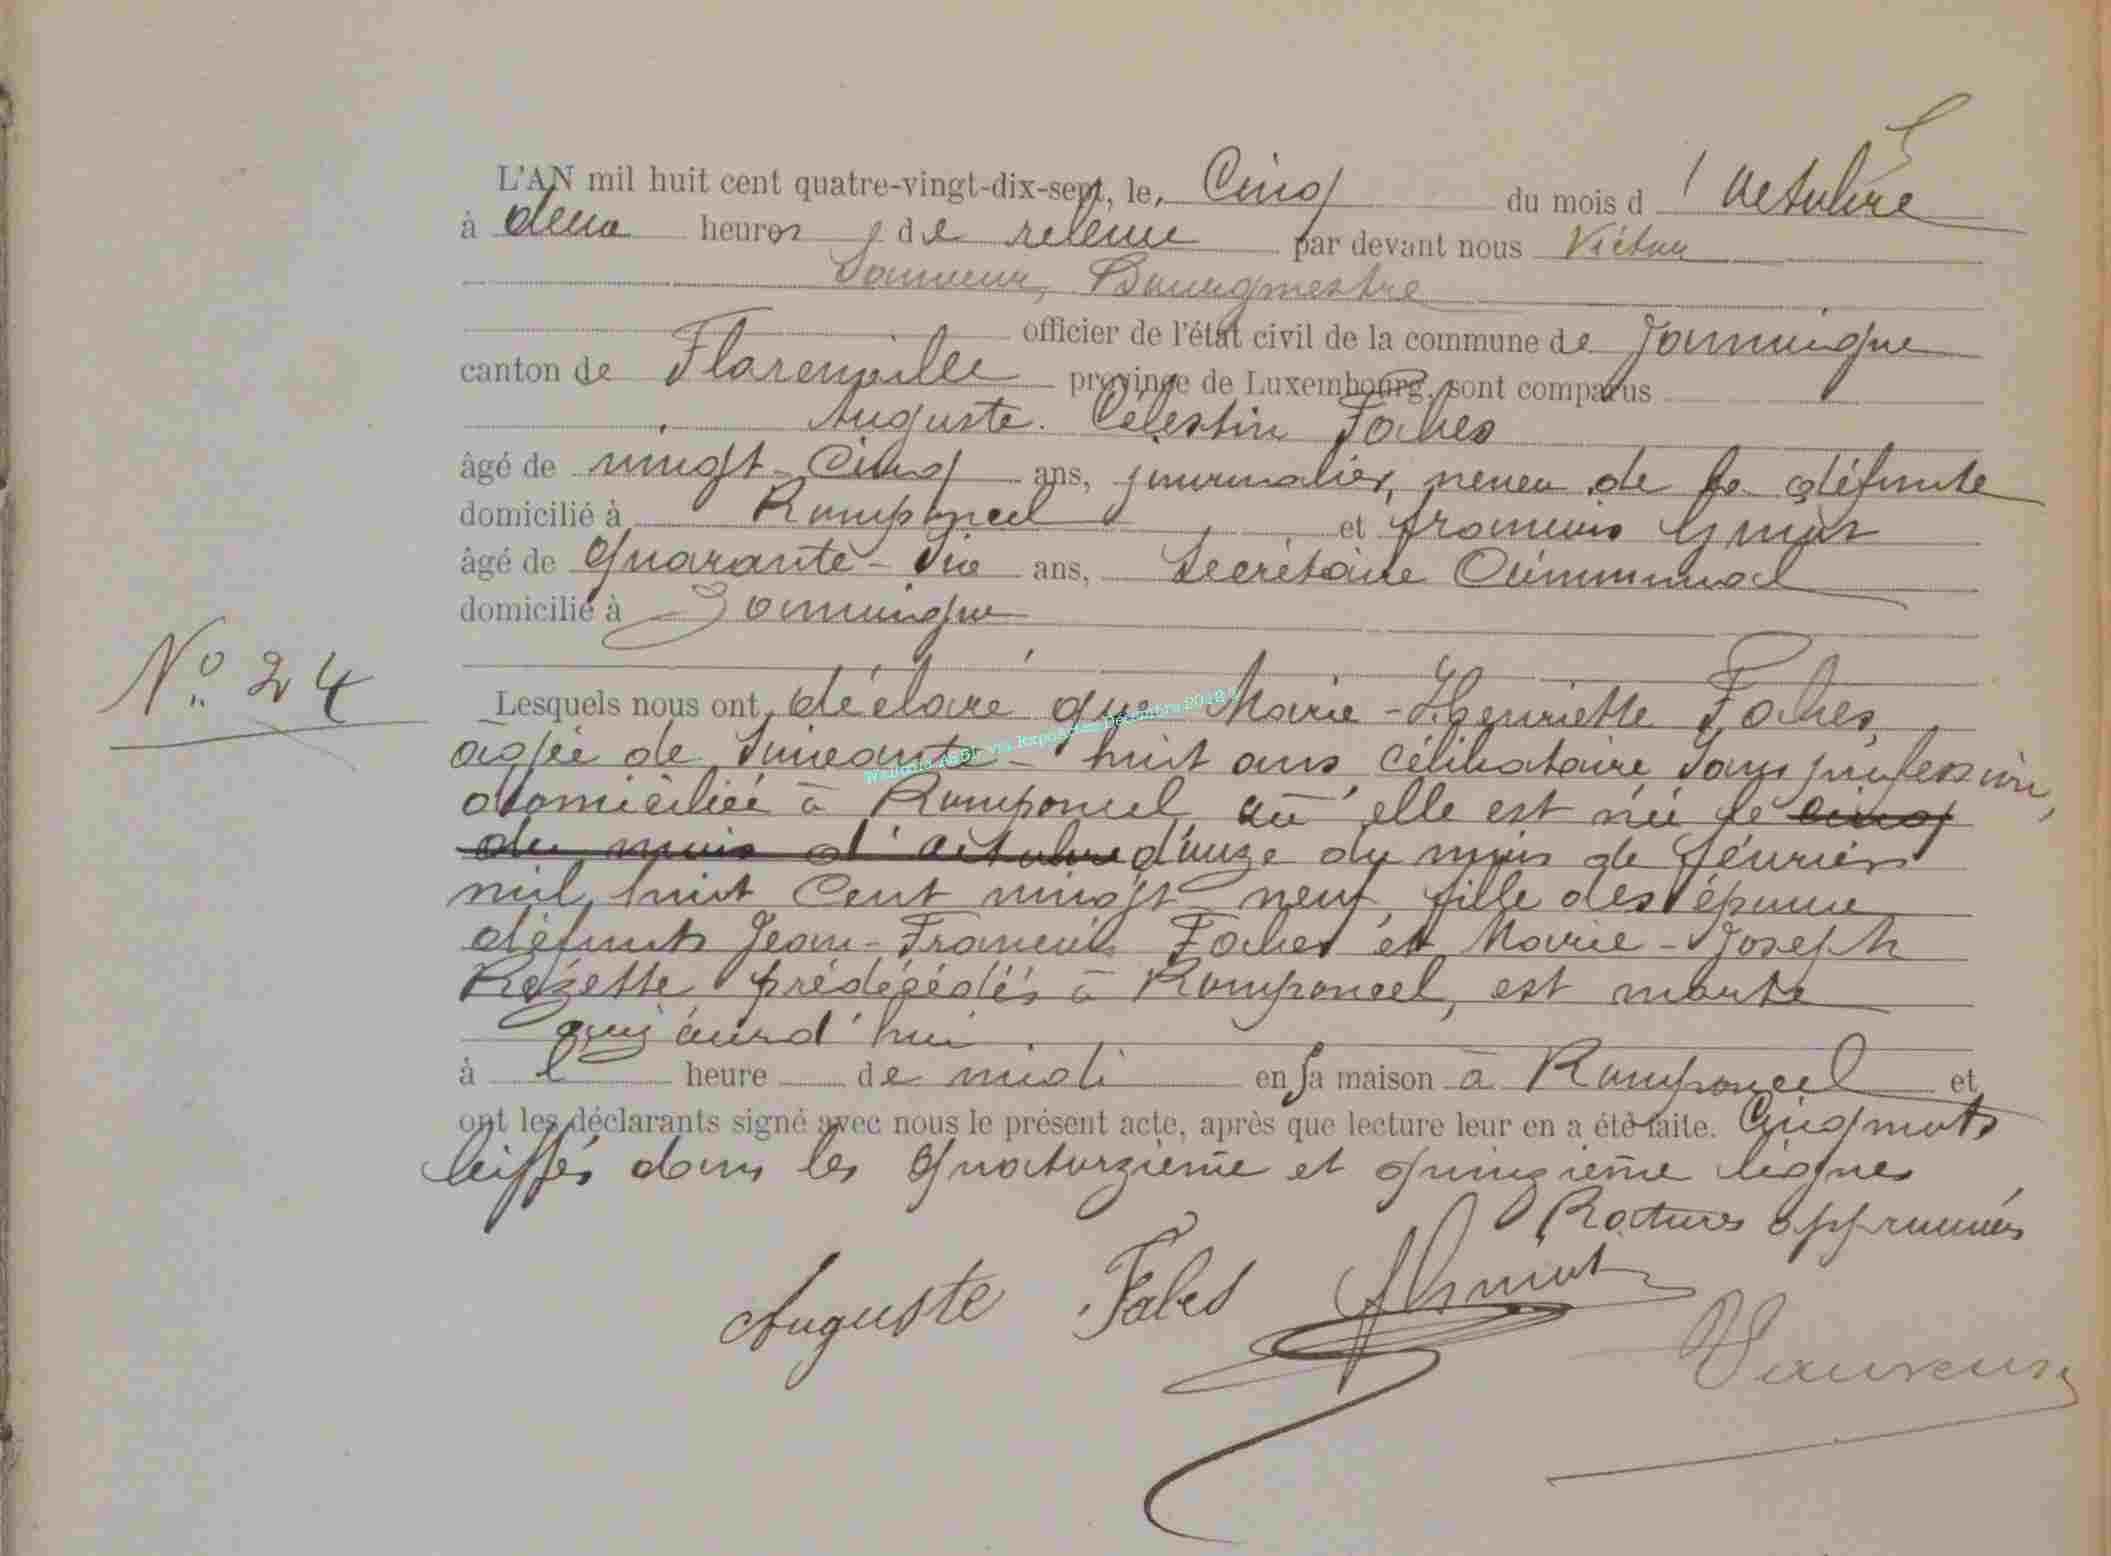 L'AN mil huit cent quatre-vingt-dix-sept, le, Cinq du mois d'Octobre
à deux heures de relevée par devant nous Victor
Sauveur, Bourgmestre
officier de l'état civil de la commune de Jamoigne
canton de Florenville province de Luxembourg, sont comparus
Auguste Célestin Fabes
âgé de vingt-Cinq ans, journalier, neveu de la défunte
domicilié à Romponcel et François
âgé de quarante-six ans, Secrétaire Communal
domicilié à Jamoigne
N° 24
Lesquels nous ont déclaré que Marie-Henriette Fabes,
agée de Soixante-huit ans célibataire sans profession,
domiciliée à Romponcel, où elle est née le cinq
du mois d'octobre douze du mois de février
mil huit Cent vingt-neuf, fille des époux
défunts Jean-François Fabes et Marie-Joseph
Rozette prédécédés à Romponcel, est morte
aujourd'hui
à heure de midi en Sa maison à Romponcel et
ont les déclarants signé avec nous le présent acte, après que lecture leur en a été faite. Cinq mots
biffés dans les quatorzième et quinzième lignes
Ratures approuvées
Auguste Fabes